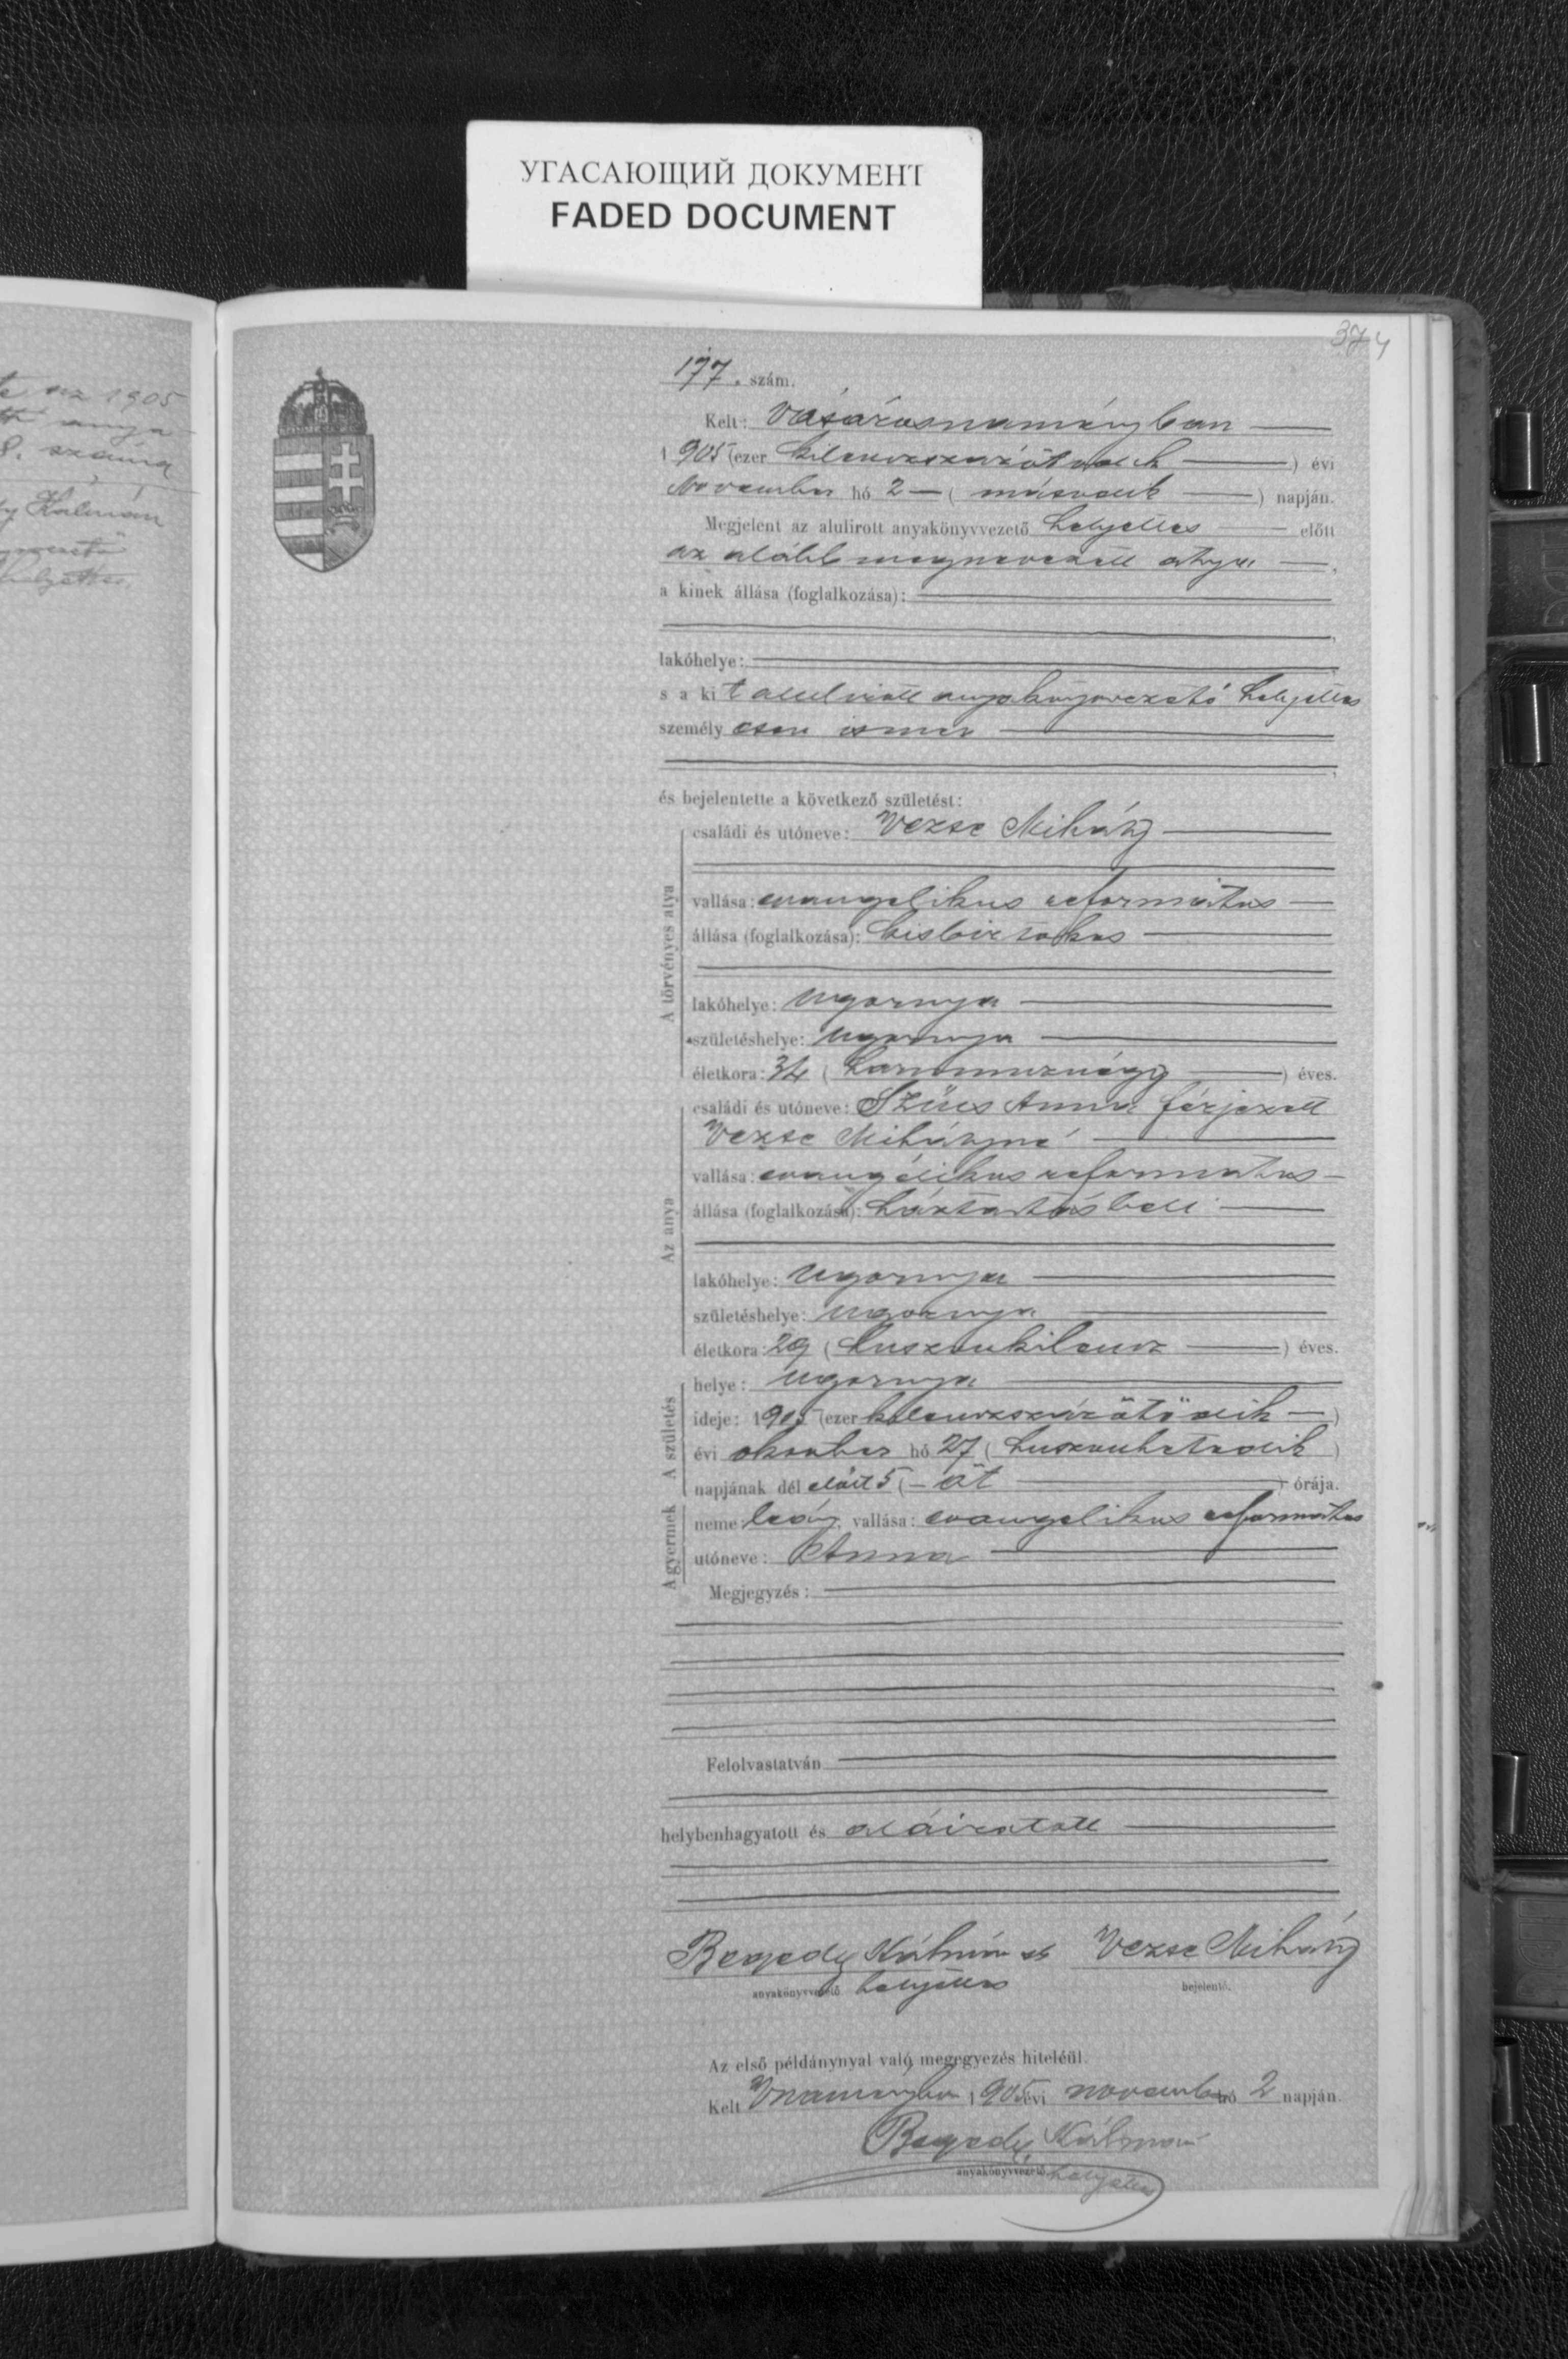 УГАСАЮЩИЙ ДОКУМЕНТ
FADED DOCUMENT
374
te az 1905
anya
8. száma
Kálmán
helyettes
177. szám.
Kelt: Vásárosnaményban
1905 (ezer kilenczszázötödik) évi
November hó 2 — (második) napján.
Megjelent az alulirott anyakönyvvezető helyettes előtt
az alább megnevezett atya,
a kinek állása (foglalkozása):
lakóhelye:
s a kit alulirott anyakönyvvezető helyettes
személyesen ismer
és bejelentette a következő születést:
A törvényes atya
családi és utóneve: Vezse Mihály
vallása: evangelikus református
állása (foglalkozása): kisbirtokos
lakóhelye: Ugornya
születéshelye: Ugornya
életkora: 34 (harmincznégy) éves.
Az anya
családi és utóneve: Szűcs Anna férjezett
Vezse Mihályné
vallása: evangélikus reformatus
állása (foglalkozása): háztartásbeli
lakóhelye: Ugornya
születéshelye: Ugornya
életkora: 29 (huszonkilencz) éves.
A születés
helye: Ugornya
ideje: 1905 (ezer kilenczszázötödik)
évi október hó 27 (huszonhetedik)
napjának dél előtt 5 (— öt) órája.
A gyermek
neme: leány, vallása: evangelikus reformatus
utóneve: Anna
Megjegyzés:
Felolvastatván
helybenhagyatott és aláiratott
Begedy Kálmán Vezse Mihály
anyakönyvvezető helyettes bejelentő.
Az első példánynyal való megegyezés hiteléül.
Kelt Vnaményban 1905 évi novemb hó 2 napján.
Begedy Kálmán
anyakönyvvezető helyettes